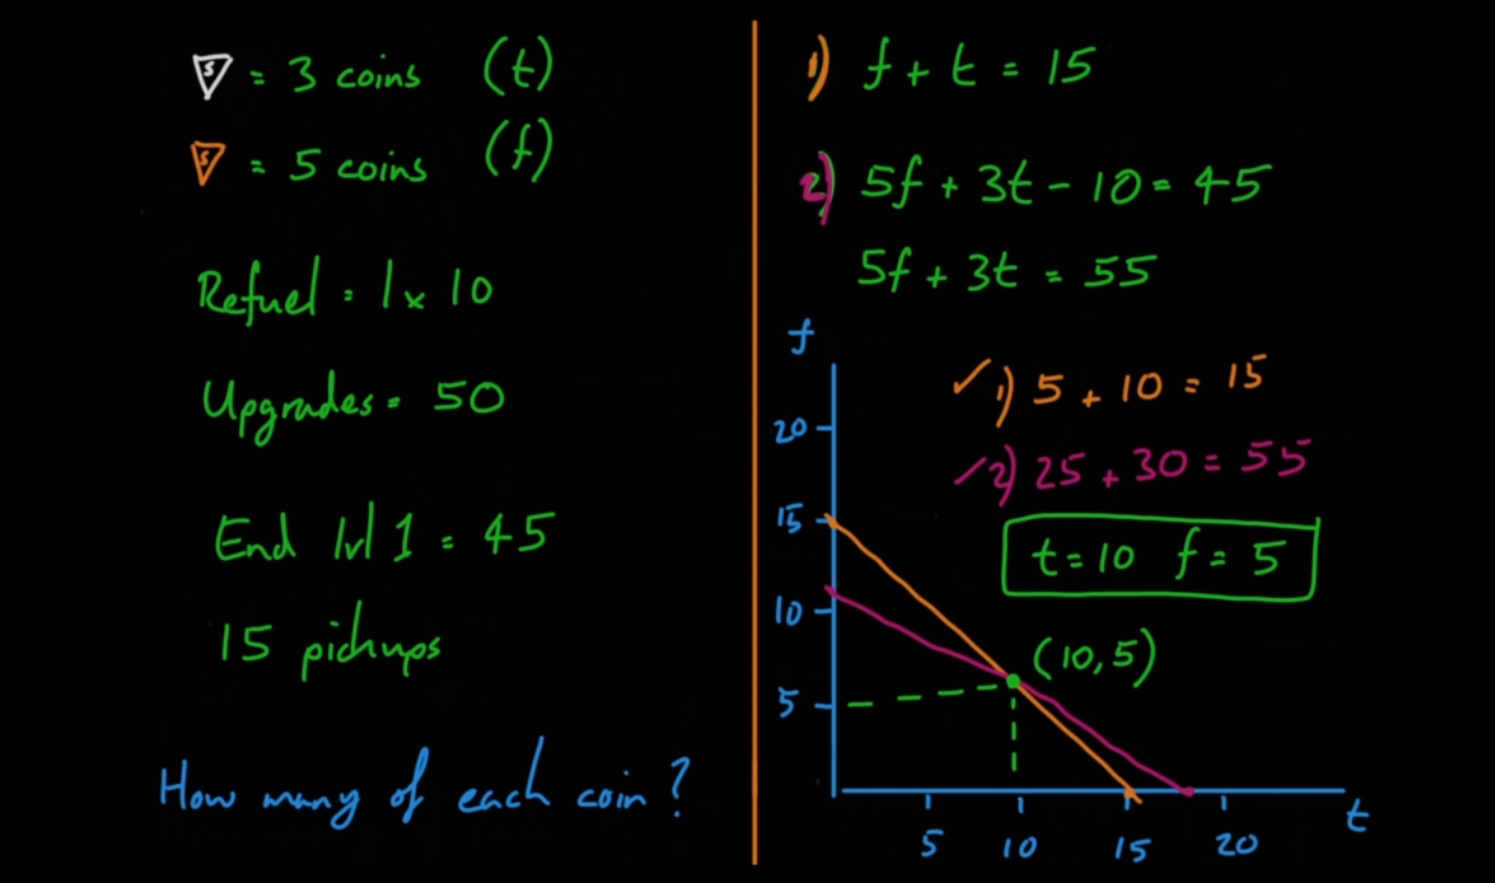 S = 3 coins (t)
S = 5 coins (f)
Refuel = 1 x 10
Upgrades = 50
End lvl 1 = 45
15 pickups
How many of each coin?
1) f + t = 15
2) 5f + 3t - 10 = 45
5f + 3t = 55
f
✓ 1) 5 + 10 = 15
20
✓ 2) 25 + 30 = 55
15
t = 10 f = 5
10
(10, 5)
5
t
5 10 15 20